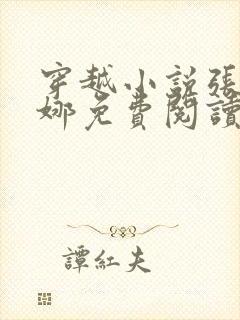 穿越小説張
娜免費閱讀
譚紅夫